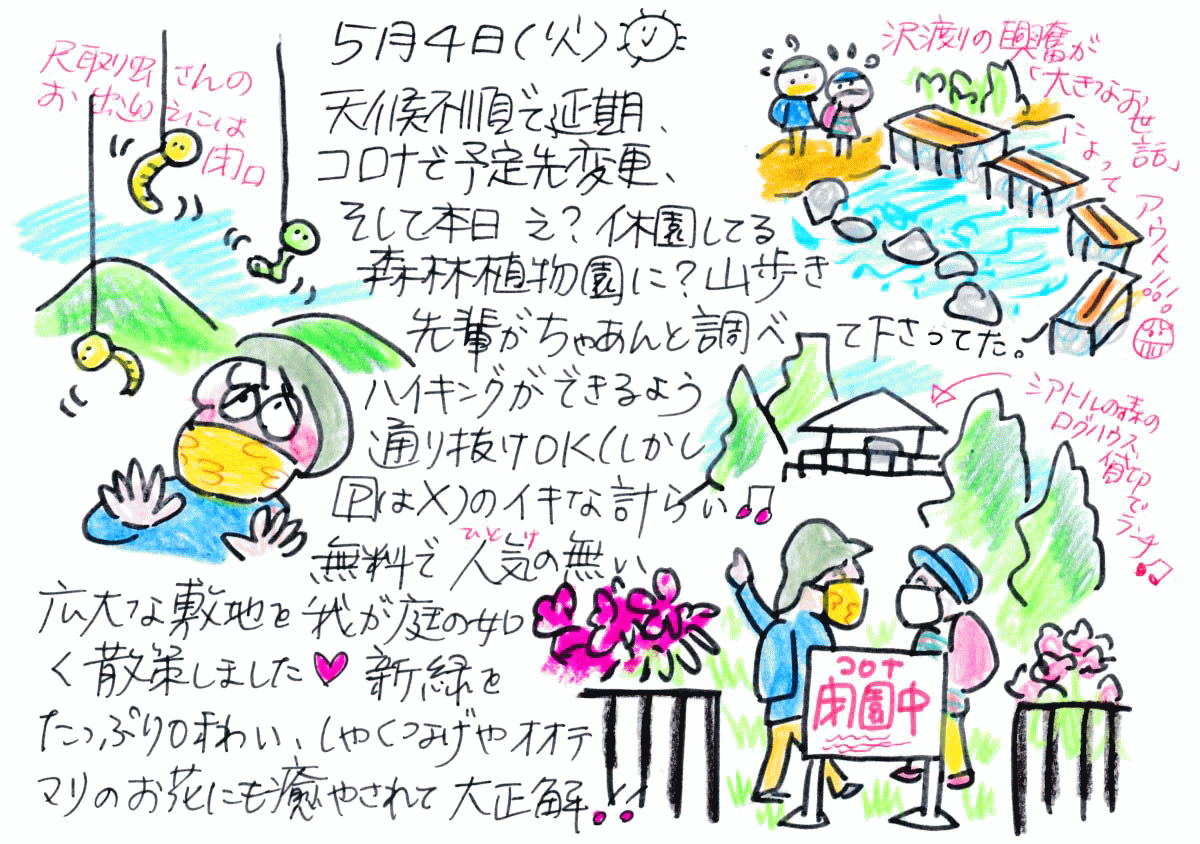 5月4日(火)
天候不順で延期、
コロナで予定先変更、
そして本日 え?休園してる
森林植物園に?山歩き
先輩がちゃあんと調べて下さってた。
ハイキングができるよう
通り抜けOK(しかし
PはX)のイキな計らい♫
無料で人気の無い
ひとけ
広大な敷地を我が庭の如
く散策しました♥ 新緑を
たっぷり味わい、しゃくなげやオオデ
マリのお花にも癒やされて大正解!!
尺取り虫さんの
お出迎えには
閉口
沢渡りの興奮が
「大きなお世話」
によって
アウト!!!
シアトルの森の
ログハウス
貸切で
ランチ♫
コロナ
閉園中